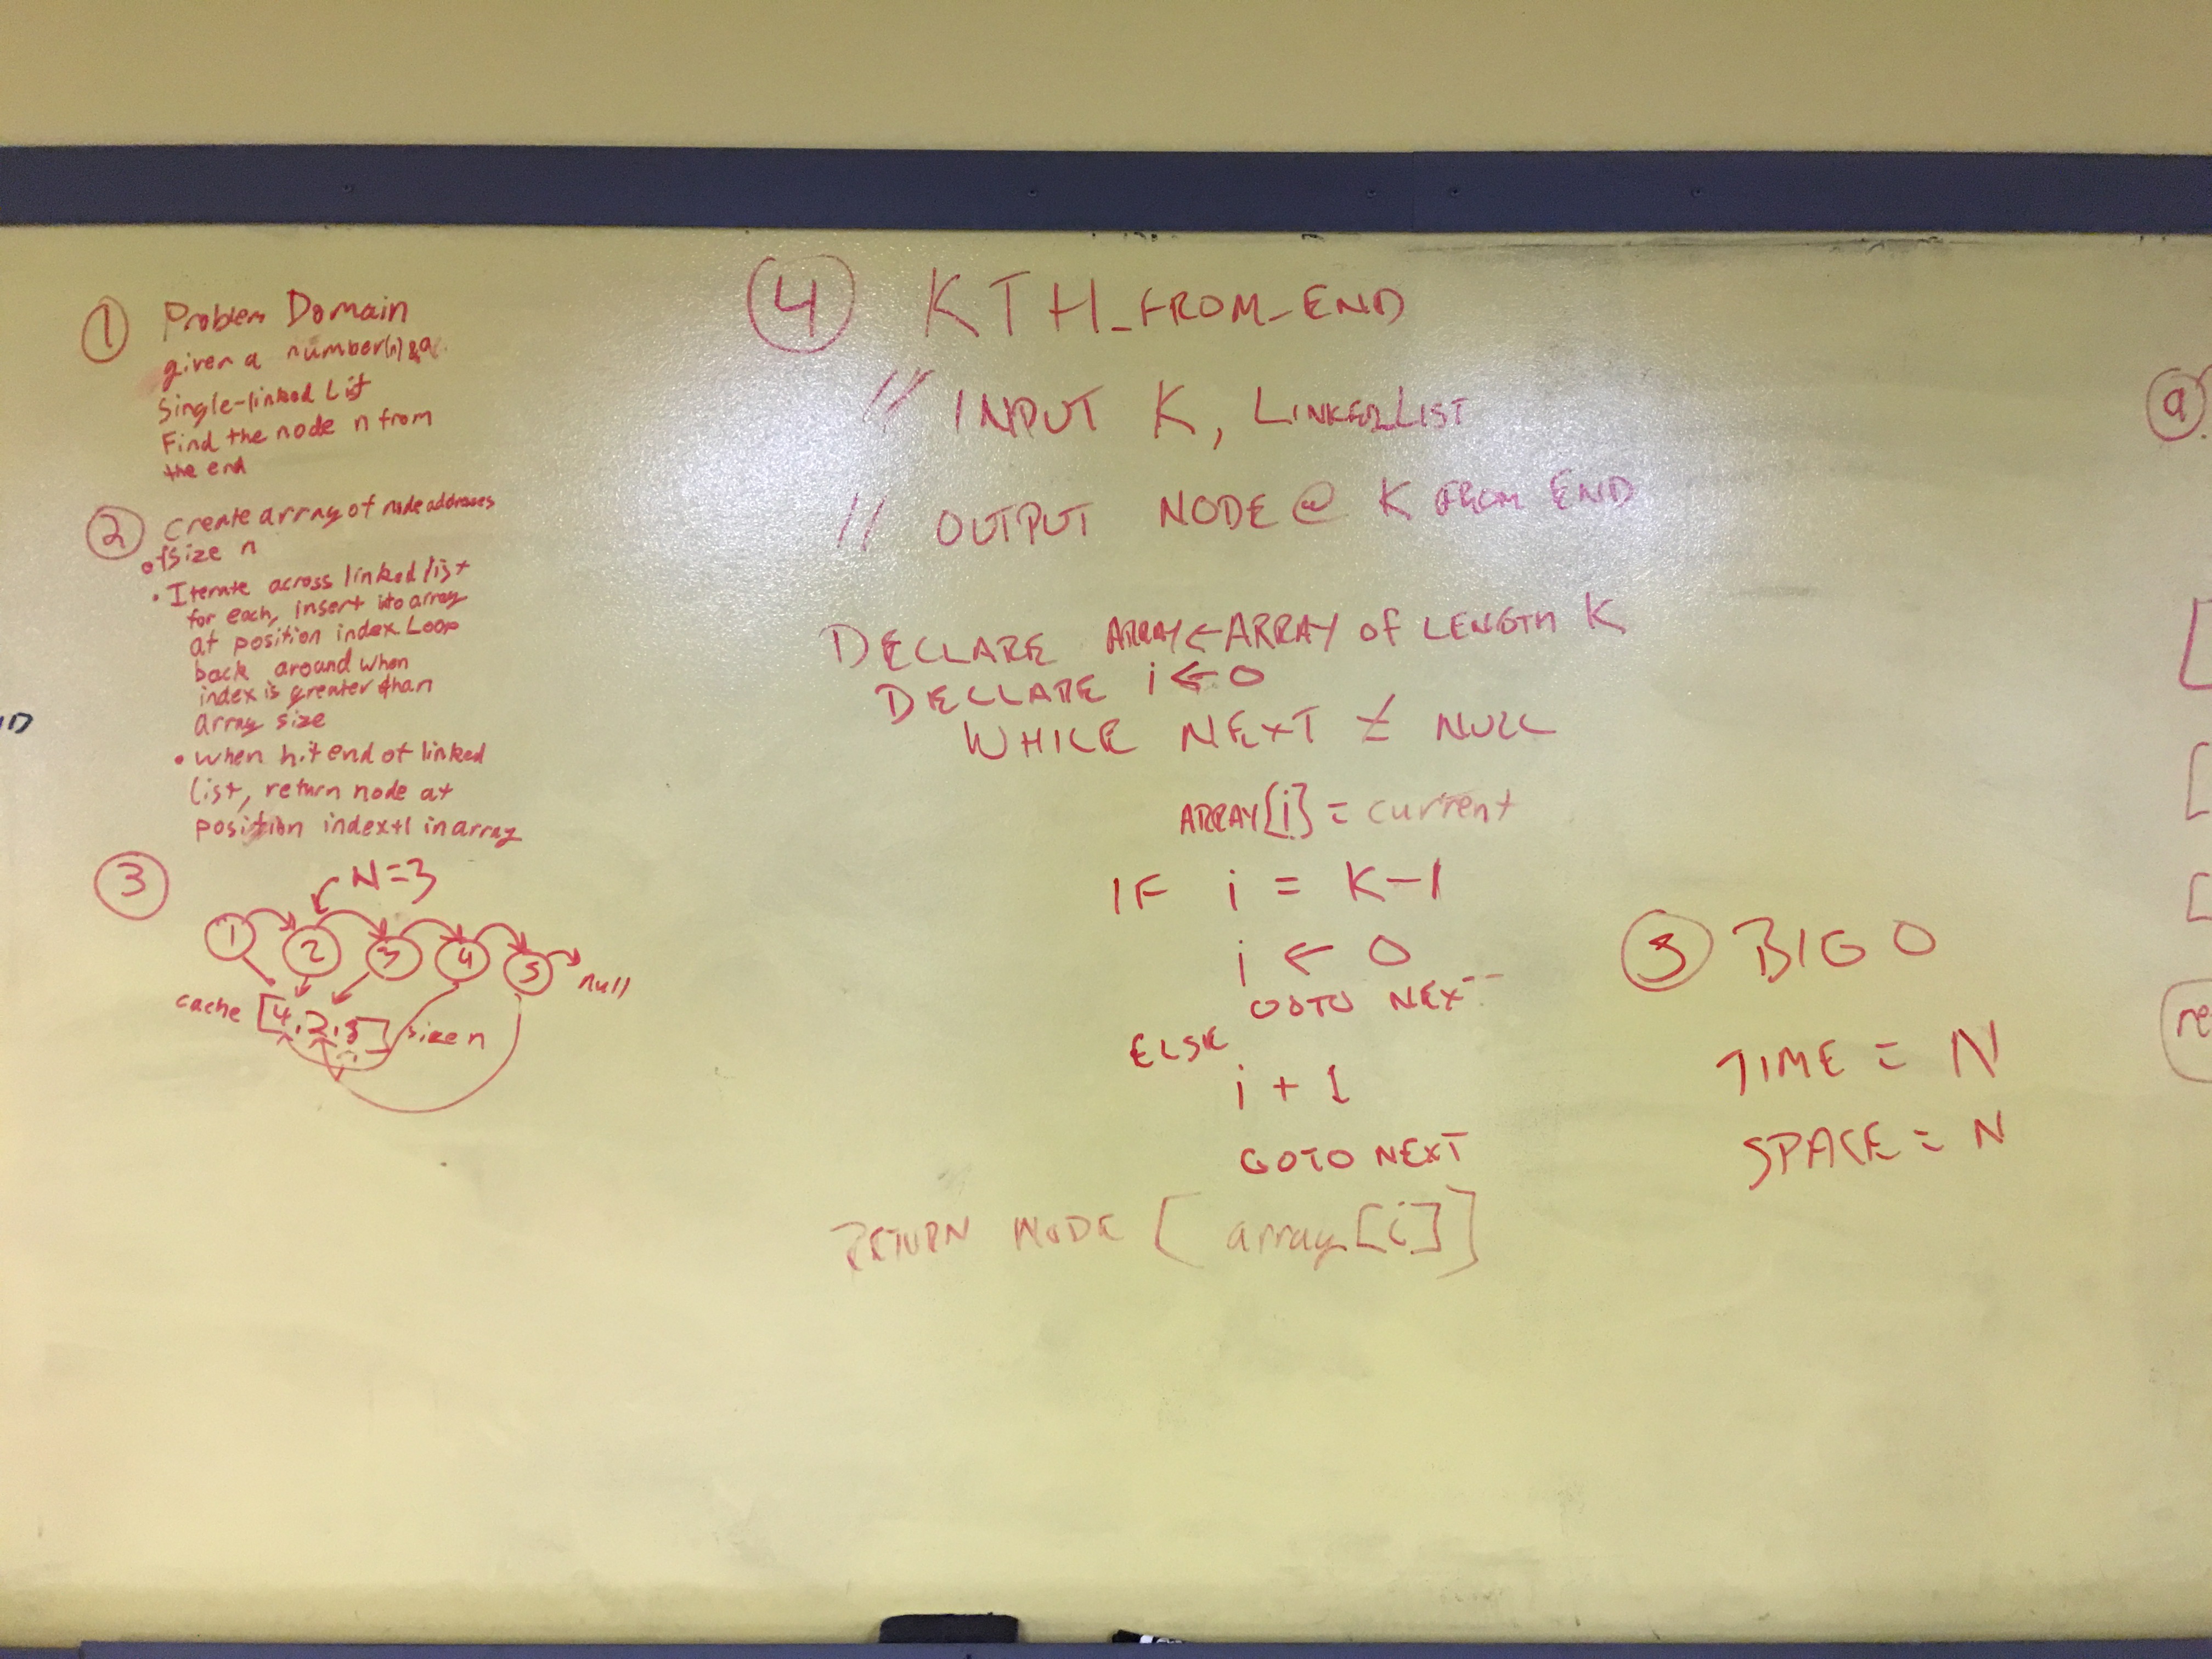 ① Problem Domain
given a number(n) & a
Single-linked List
Find the node n from
the end
② Create array of node addresses
of size n
• Iterate across linked list
for each, insert into array
at position index. Loop
back around when
index is greater than
array size
• when hit end of linked
list, return node at
position index+1 in array
③ N=3
1 2 3 4 5 null
cache [4, 2, 3] size n
④ KTH_FROM_END
// INPUT K, LINKED_LIST
// OUTPUT NODE @ K FROM END
DECLARE ARRAY ← ARRAY OF LENGTH K
DECLARE i ← 0
WHILE NEXT ≠ NULL
ARRAY[i] = current
IF i = K-1
i ← 0
GOTO NEXT
ELSE
i + 1
GOTO NEXT
RETURN NODE [array[i]]
⑤ BIG O
TIME = N
SPACE = N
a
re